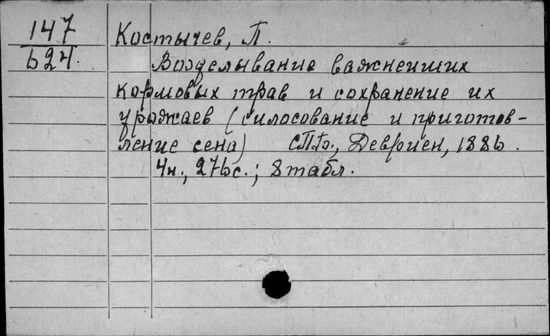 147
624.
Костычев, П.
Возделывание важнейших
кормовых трав и сохранение их
урожаев (силосование и приготов-
ление сена) СПб., Девриен, 1886.
4н., 276с.; 8 табл.